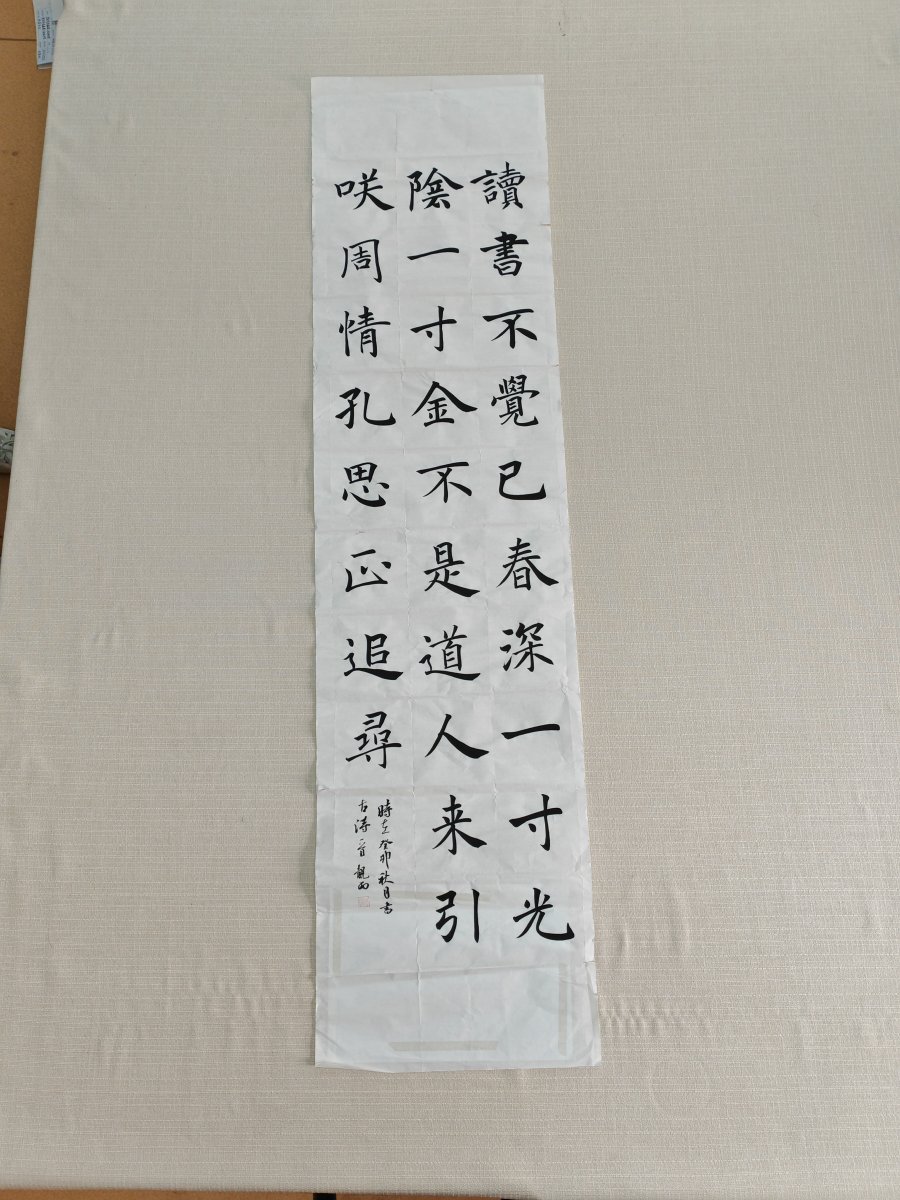 讀書不覺已春深一寸光
陰一寸金不是道人来引
咲周情孔思正追尋
時在癸卯秋月書
古詩一首觀雨